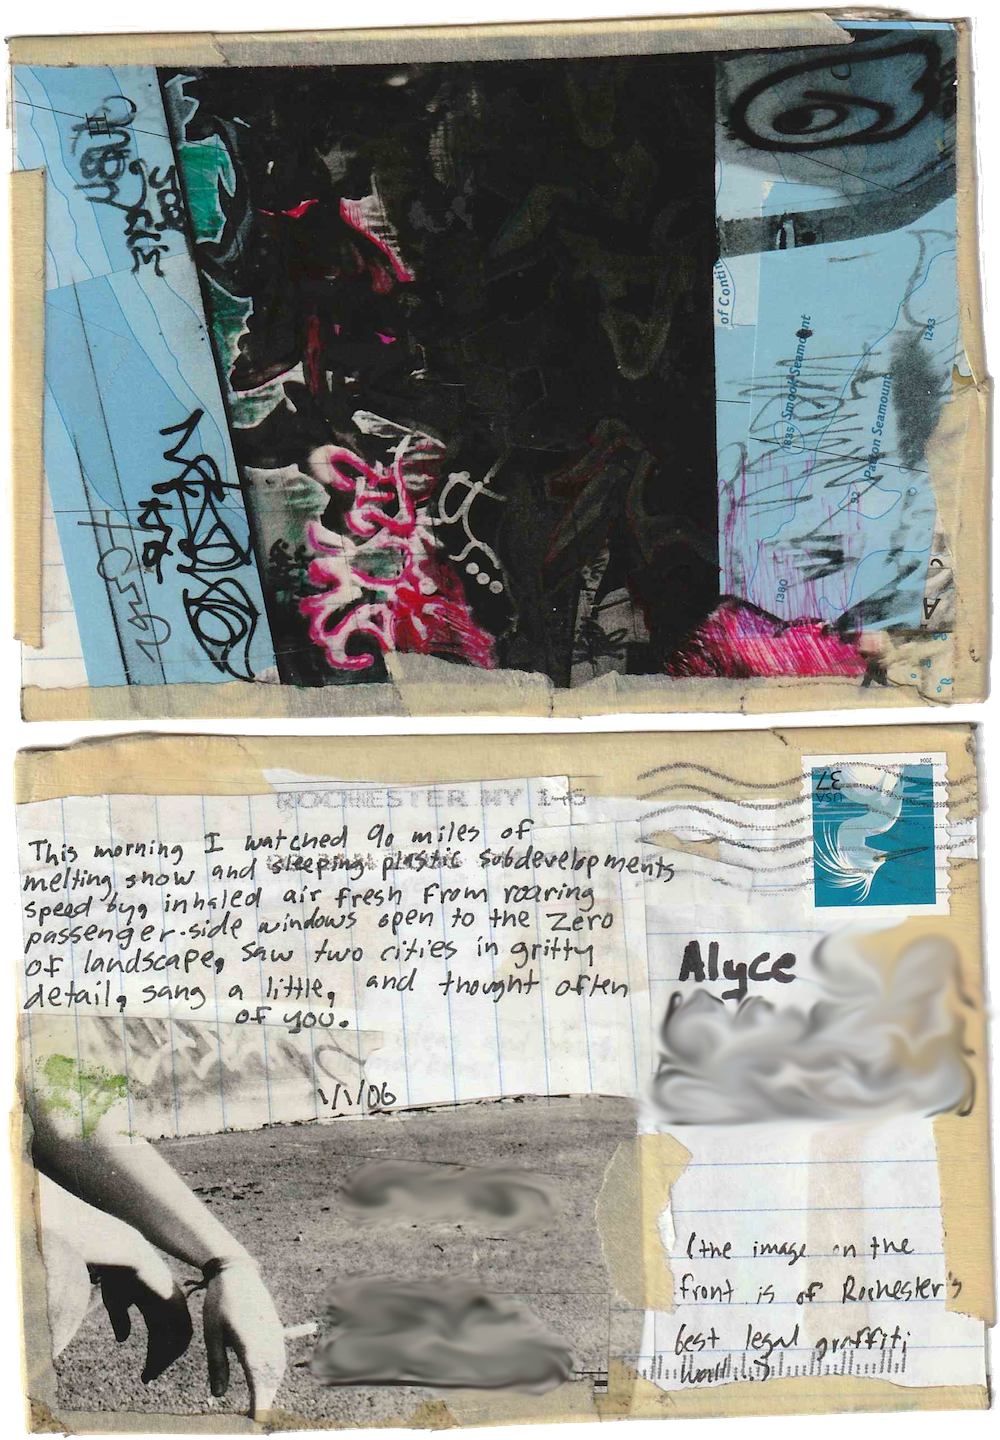 of Contin
1835 Smoot Seamount
Patton Seamount
1243
92
1380
A
ROCHESTER NY 146
2004
USA
37
This morning I watched 90 miles of
melting snow and sleeping plastic subdevelopments
speed by, inhaled air fresh from roaring
passenger-side windows open to the Zero
of landscape, saw two cities in gritty
detail, sang a little, and thought often
of you.
1/1/06
Alyce
(the image on the
front is of Rochester's
best legal graffiti
wall.)